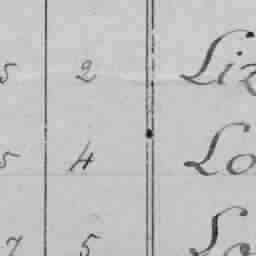 5 2 Liz
5 4 Lo
7 5 Lo